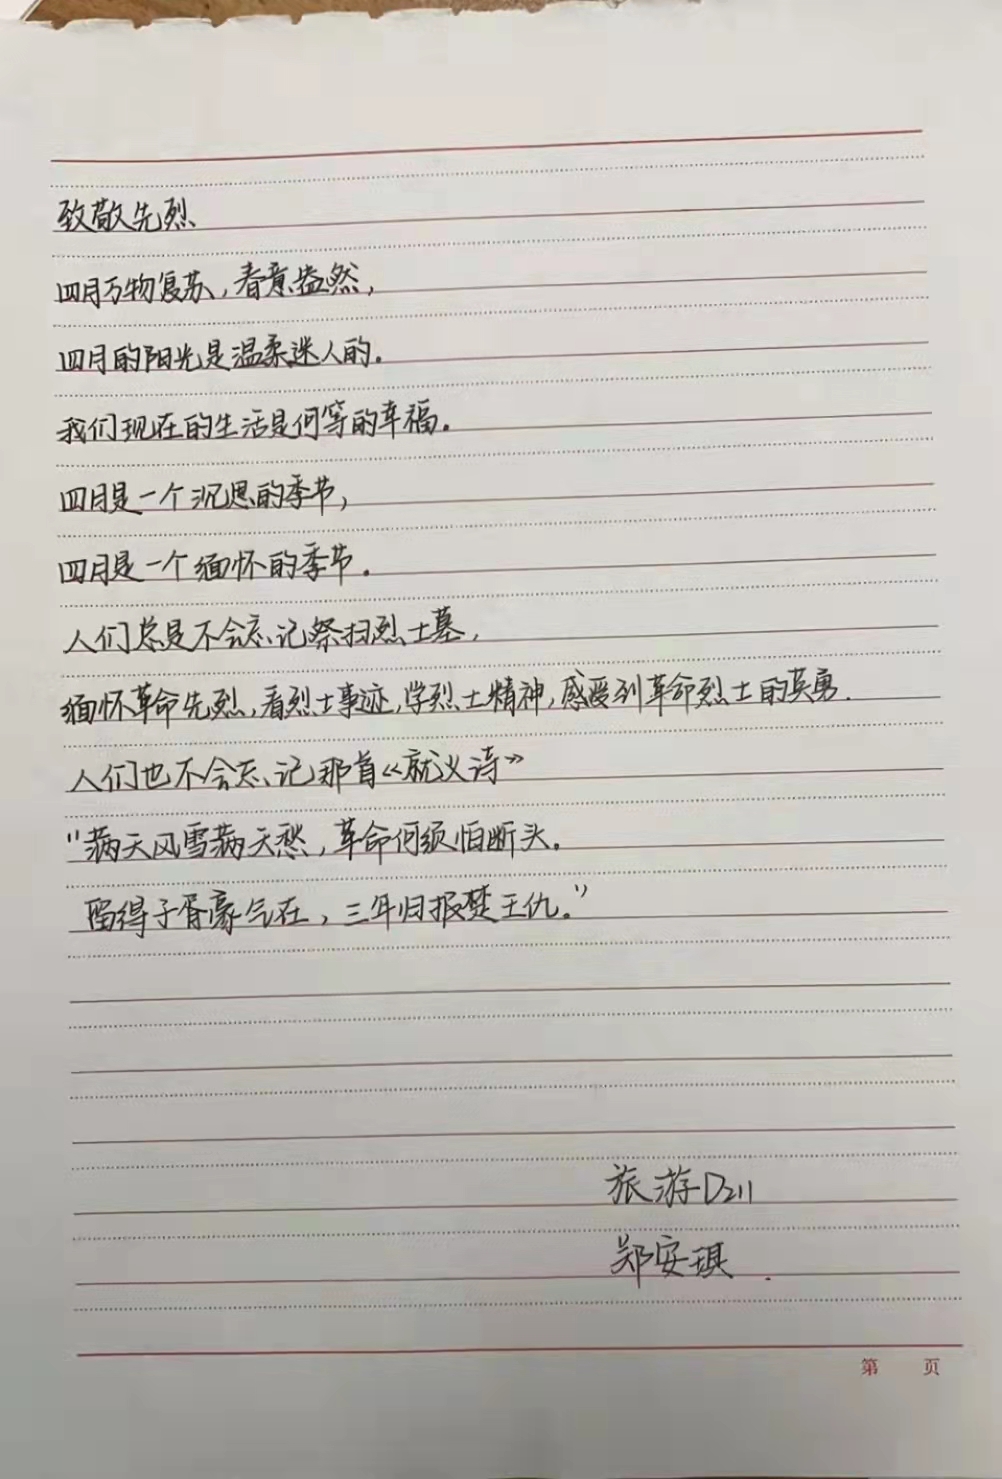 致敬先烈
四月万物复苏，春意盎然，
四月的阳光是温柔迷人的。
我们现在的生活是何等的幸福。
四月是一个沉思的季节，
四月是一个缅怀的季节。
人们总是不会忘记祭扫烈士墓，
缅怀革命先烈，看烈士事迹，学烈士精神，感受到革命烈士的英勇.
人们也不会忘记那首《就义诗》
"满天风雪满天愁，革命何须怕断头。
留得子胥豪气在，三年归报楚王仇。"
旅游D211
郑安琪.
第 页